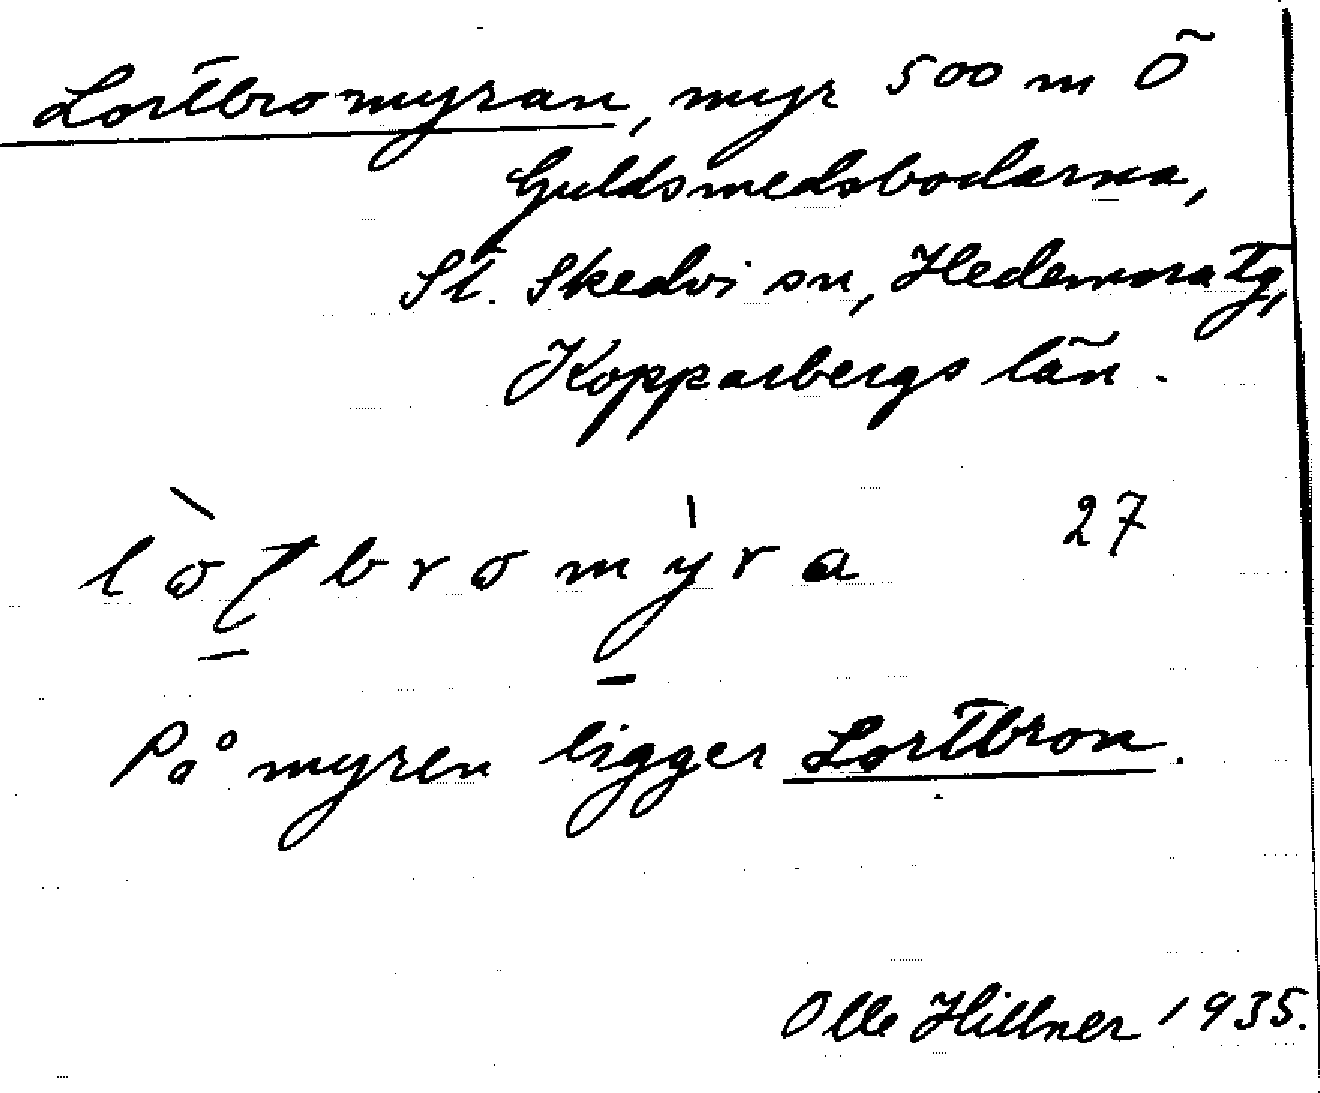 Lortbromyran, myr 500 m Ö
Guldsmedsbodarna,
St. Skedvi sn, Hedemora tg,
Kopparbergs län.
27
På myren ligger Lortbron.
Olle Hillner 1935.